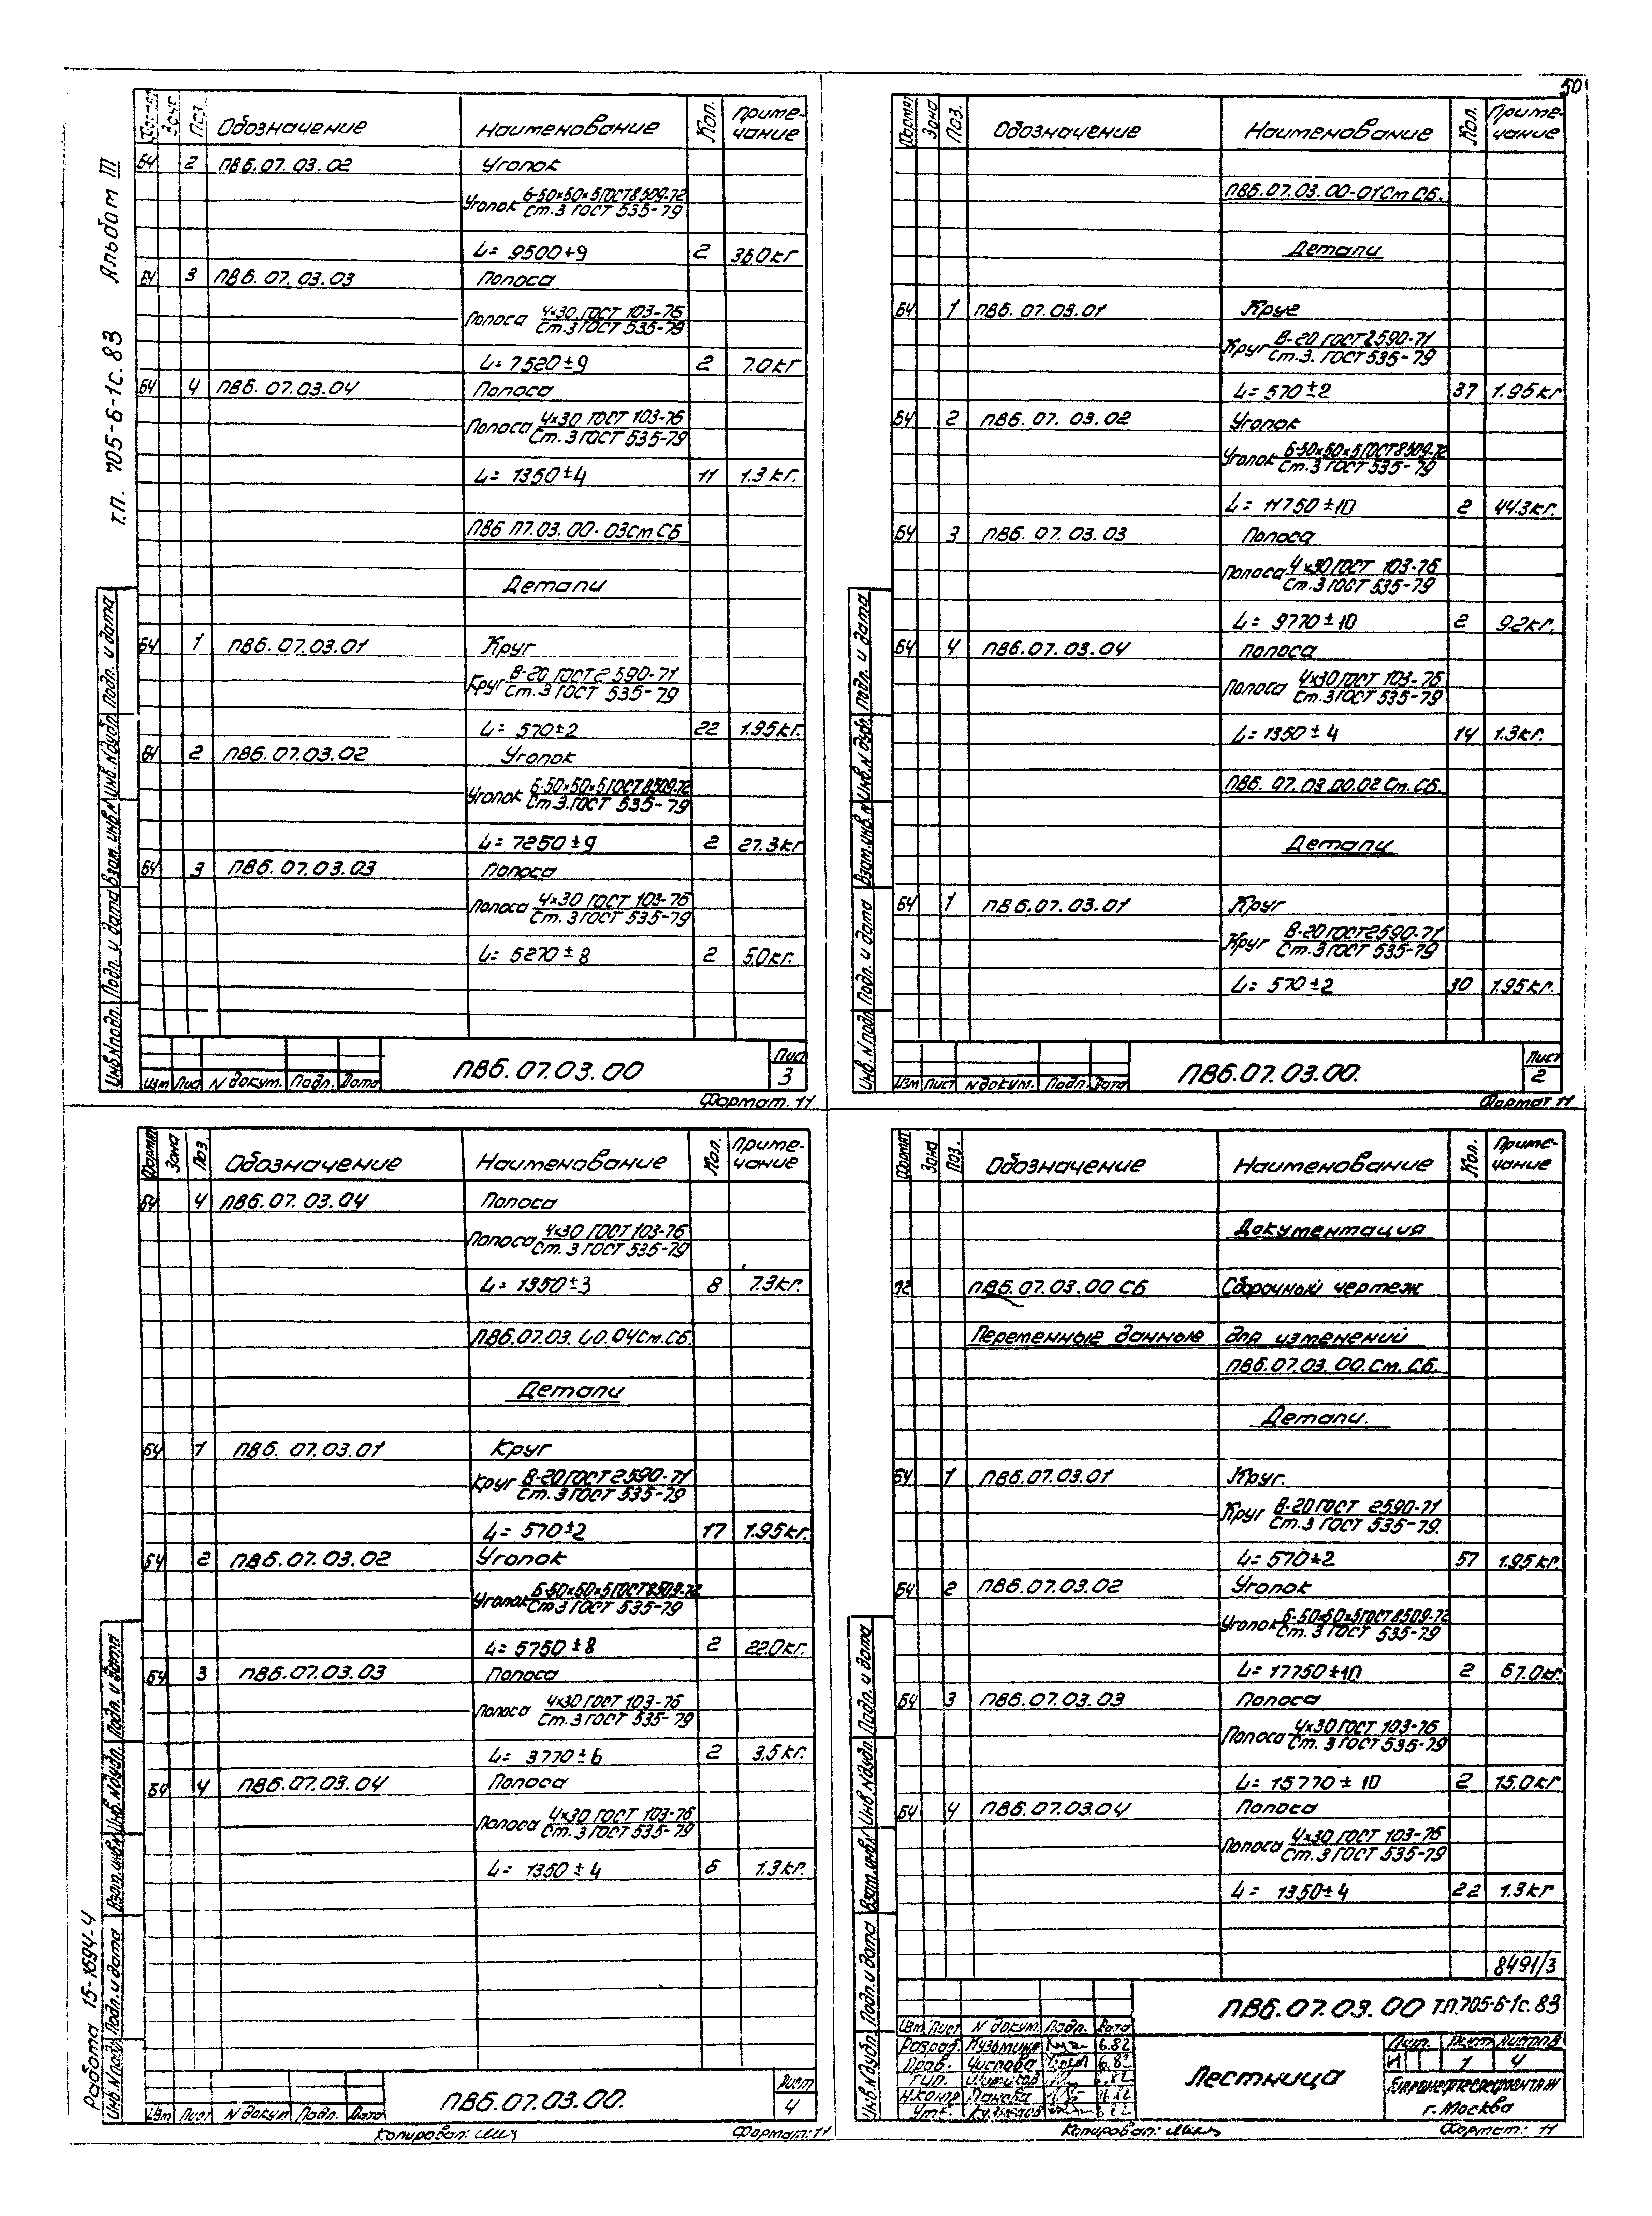 50
Альбом III
т.п. 705-6-1с.83
Формат Зона Поз. Обозначение Наименование Кол. Примечание
БЧ 2 ПВ6.07.03.02 Уголок
Уголок Б-50×50×5 ГОСТ 8509-72
Ст.3 ГОСТ 535-79
L= 9500±9 2 36.0кг
БЧ 3 ПВ6.07.03.03 Полоса
Полоса 4×30 ГОСТ 103-76
Ст.3 ГОСТ 535-79
L= 7520±9 2 7.0кг
БЧ 4 ПВ6.07.03.04 Полоса
Полоса 4×30 ГОСТ 103-76
Ст.3 ГОСТ 535-79
L= 1350±4 11 1.3кг.
ПВ6 07.03.00-03Ст СБ
Детали
БЧ 1 ПВ6.07.03.01 Круг
Круг В-20 ГОСТ 2590-71
Ст.3 ГОСТ 535-79
L= 570±2 22 1.95кг.
БЧ 2 ПВ6.07.03.02 Уголок
Уголок Б-50×50×5 ГОСТ 8509-72
Ст.3.ГОСТ 535-79
L= 7250±9 2 27.3кг
БЧ 3 ПВ6.07.03.03 Полоса
Полоса 4×30 ГОСТ 103-76
Ст.3 ГОСТ 535-79
L= 5270±8 2 5.0кг.
Инв.N подл. Подп. и дата Взам.инв.N Инв.N дубл. Подп. и дата
Изм Лист N докум. Подп. Дата
ПВ6.07.03.00
Лист
3
Формат.11
Формат Зона Поз. Обозначение Наименование Кол. Примечание
ПВ6.07.03.00-01Ст СБ.
Детали
БЧ 1 ПВ6.07.03.01 Круг
Круг В-20 ГОСТ 2590-71
Ст.3. ГОСТ 535-79
L= 570±2 37 1.95кг
БЧ 2 ПВ6.07.03.02 Уголок
Уголок Б-50×50×5 ГОСТ 8509-72
Ст.3 ГОСТ 535-79
L= 11750±10 2 44.3кг.
БЧ 3 ПВ6.07.03.03 Полоса
Полоса 4×30 ГОСТ 103-76
Ст.3 ГОСТ 535-79
L= 9770±10 2 9.2кг.
БЧ 4 ПВ6.07.03.04 Полоса
Полоса 4×30 ГОСТ 103-76
Ст.3 ГОСТ 535-79
L= 1350±4 14 1.3кг.
ПВ6.07.03.00.02 Ст.СБ.
Детали
БЧ 1 ПВ6.07.03.01 Круг
Круг В-20 ГОСТ 2590-71
Ст.3 ГОСТ 535-79
L= 570±2 30 1.95кг.
Инв.N подл. Подп. и дата Взам.инв.N Инв.N дубл. Подп. и дата
Изм Лист N докум. Подп. Дата
ПВ6.07.03.00.
Лист
2
Формат 11
Формат Зона Поз. Обозначение Наименование Кол. Примечание
БЧ 4 ПВ6.07.03.04 Полоса
Полоса 4×30 ГОСТ 103-76
Ст.3 ГОСТ 535-79
L= 1350±3 8 7.3кг.
ПВ6.07.03.00.04Ст.СБ.
Детали
БЧ 1 ПВ6.07.03.01 Круг
Круг В-20 ГОСТ 2590-71
Ст.3 ГОСТ 535-79
L= 570±2 17 1.95кг.
БЧ 2 ПВ6.07.03.02 Уголок
Уголок Б-50×50×5 ГОСТ 8509-72
Ст.3 ГОСТ 535-79
L= 5750±8 2 22.0кг.
БЧ 3 ПВ6.07.03.03 Полоса
Полоса 4×30 ГОСТ 103-76
Ст.3 ГОСТ 535-79
L= 3770±6 2 3.5кг.
БЧ 4 ПВ6.07.03.04 Полоса
Полоса 4×30 ГОСТ 103-76
Ст.3 ГОСТ 535-79
L= 1350±4 6 1.3кг.
Работа 15-1694-4
Инв.N подл. Подп. и дата Взам.инв.N Инв.N дубл. Подп. и дата
Изм Лист N докум Подп. Дата
ПВ6.07.03.00.
Лист
4
Копировал:
Формат:11
Формат Зона Поз. Обозначение Наименование Кол. Примечание
Документация
12 ПВ6.07.03.00 СБ Сборочный чертеж
Переменные данные для изменений
ПВ6.07.03.00.Ст.СБ.
Детали.
БЧ 1 ПВ6.07.03.01 Круг.
Круг В-20 ГОСТ 2590-71
Ст.3 ГОСТ 535-79.
L= 570±2 57 1.95кг.
БЧ 2 ПВ6.07.03.02 Уголок
Уголок Б-50×50×5 ГОСТ 8509-72
Ст.3 ГОСТ 535-79
L= 17750±10 2 67.0кг.
БЧ 3 ПВ6.07.03.03 Полоса
Полоса 4×30 ГОСТ 103-76
Ст.3 ГОСТ 535-79
L= 15770±10 2 15.0кг
БЧ 4 ПВ6.07.03.04 Полоса
Полоса 4×30 ГОСТ 103-76
Ст.3 ГОСТ 535-79
L= 1350±4 22 1.3кг
8491/3
Инв.N дубл. Подп. и дата Взам.инв.N Инв.N дубл. Подп. и дата
ПВ6.07.03.00 Т.П.705-6-1с.83
Изм Лист N докум. Подп. Дата
Разраб. Кузьмина 6.82
Пров. Чуслова 6.82
Гип. 6.82
Н.контр Панова
Утв. Кузнецов
Лестница
Лит. Лист Листов
И 1 4
Гипронефтеспецмонтаж
г. Москва
Копировал:
Формат: 11